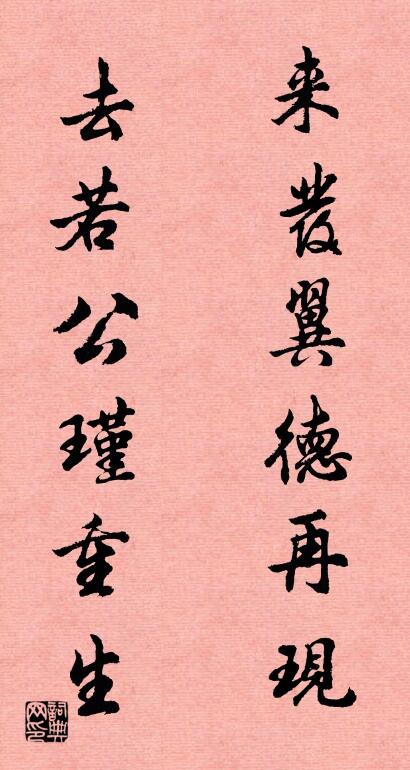 来發翼德再現
去若公瑾重生
詞典
网印